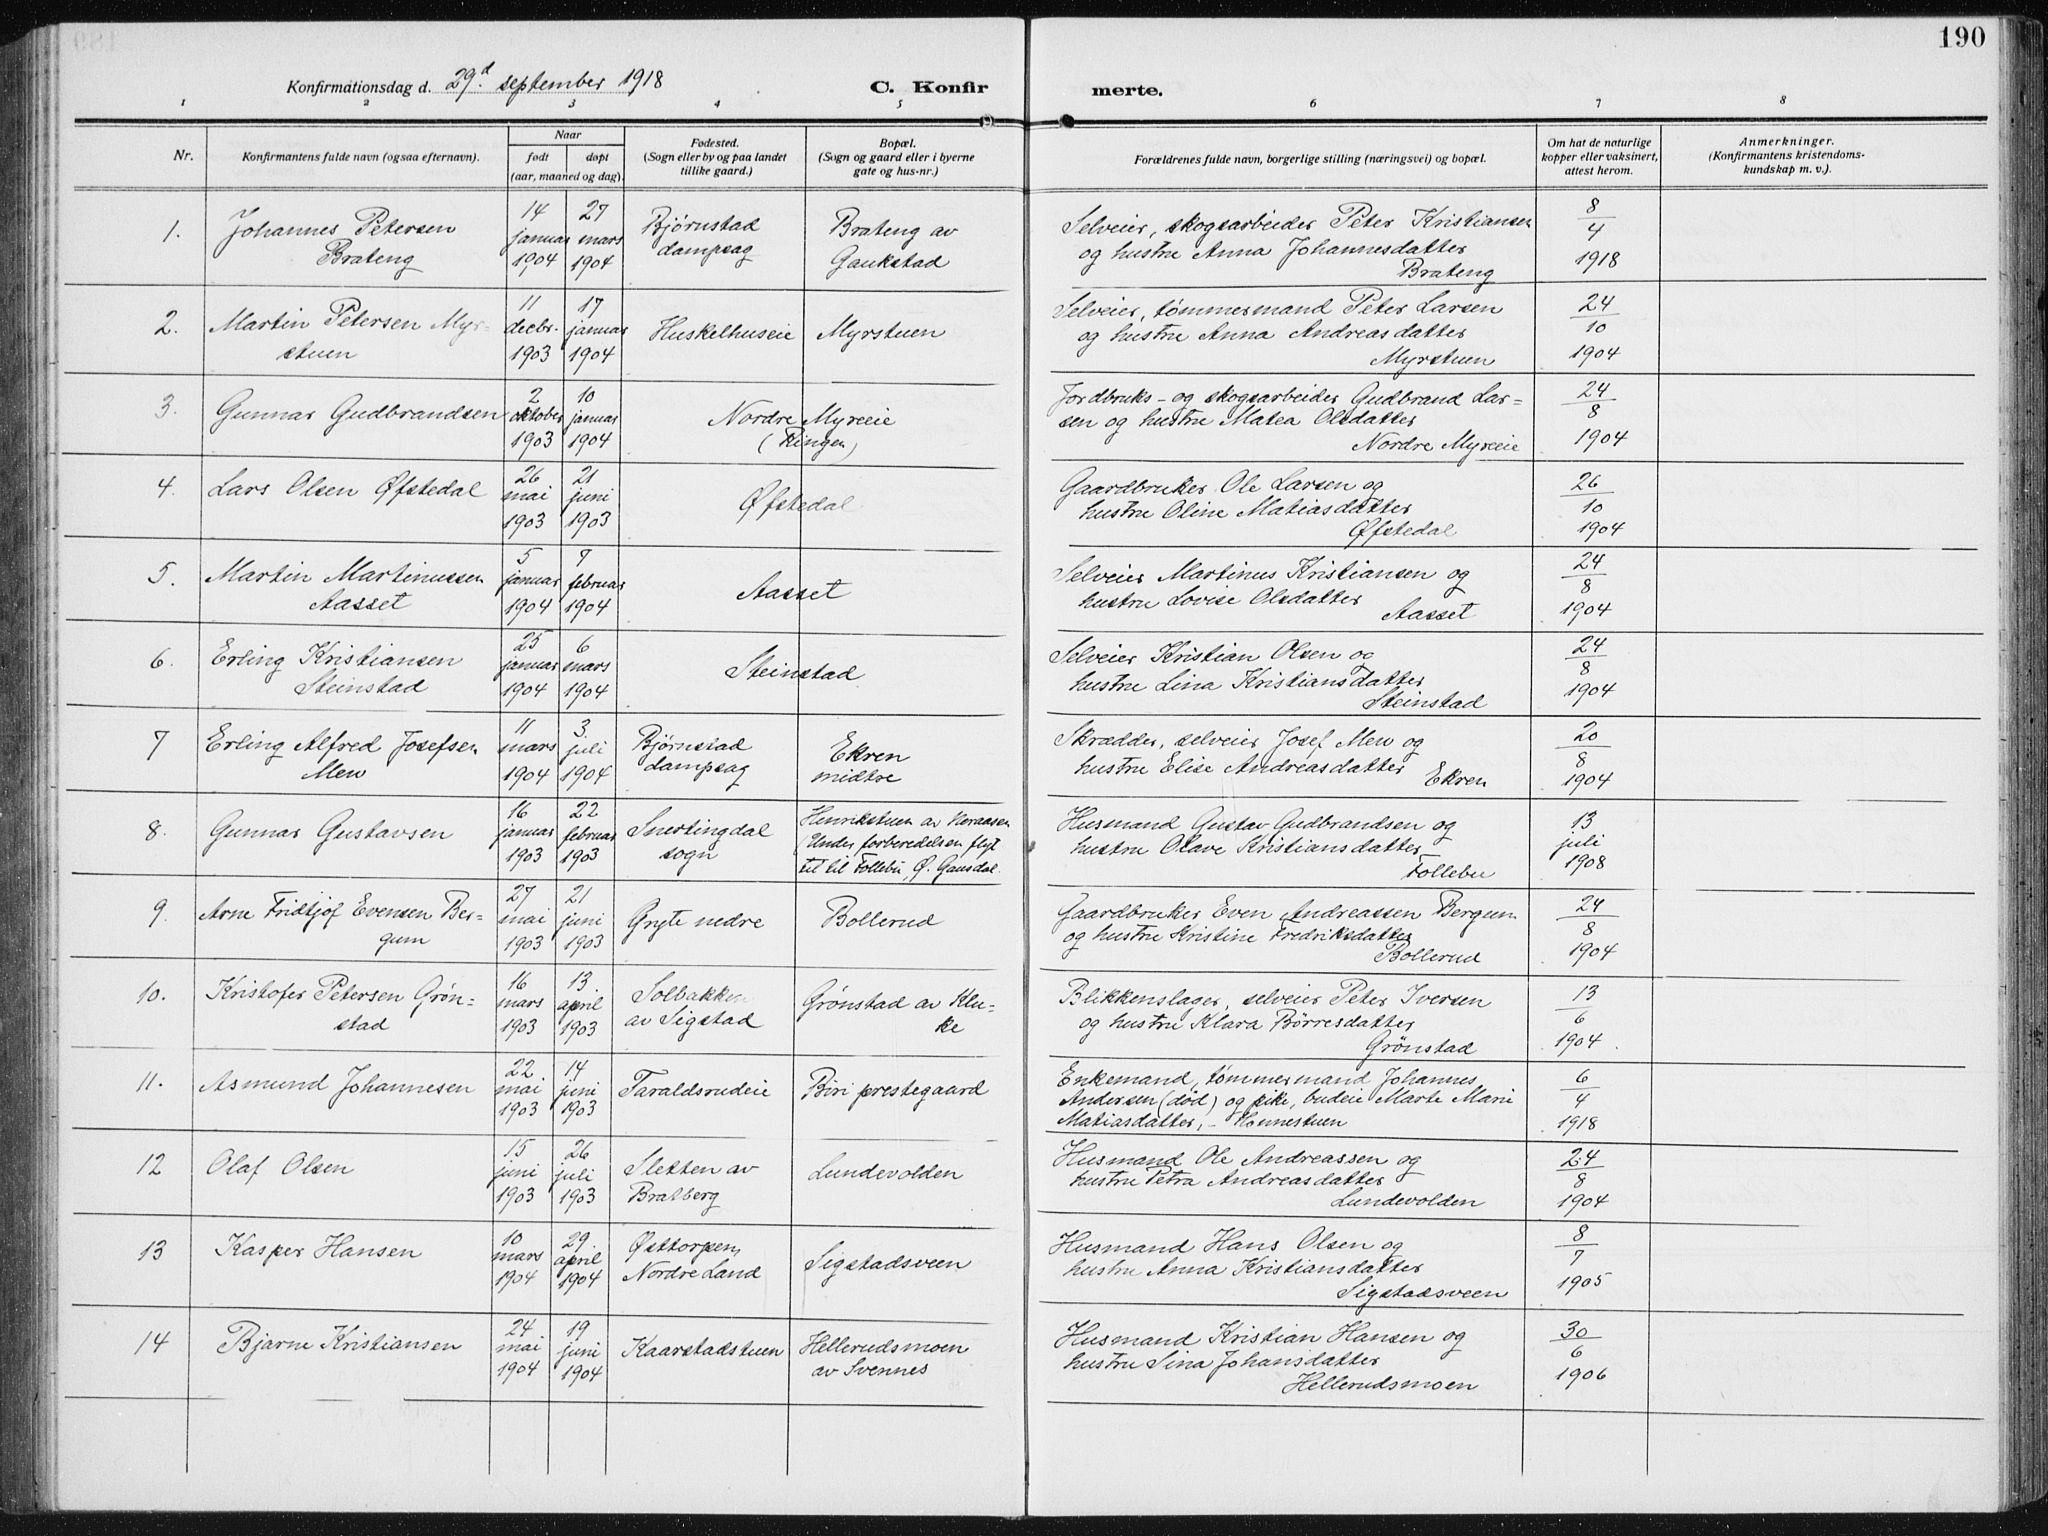 190
Konfirmationsdag d. 29d september 1918
C. Konfir merte.
1 2 3 4 5 6 7 8
Nr.
Konfirmantens fulde navn (ogsaa efternavn).
Naar
født døpt
(aar, maaned og dag).
Fødested.
(Sogn eller by og paa landet
tillike gaard.)
Bopæl.
(Sogn og gaard eller i byerne
gate og hus-nr.)
Forældrenes fulde navn, borgerlige stilling (næringsvei) og bopæl.
Om hat de naturlige
kopper eller vaksinert,
attest herom.
Anmerkninger.
(Konfirmantens kristendoms-
kundskap m. v.).
1.
Johannes Petersen
Brateng
14
januar
1904
27
mars
1904
Bjørnstad
dampsag
Brateng av
Gaukstad
Selveier, skogsarbeider Peter Kristiansen
og hustru Anna Johannesdatter
Brateng
8
4
1918
2.
Martin Petersen Myr-
stuen
11
decbr.
1903
17
januar
1904
Huskelhuseie
Myrstuen
Selveier, tømmermand Peter Larsen
og hustru Anna Andreasdatter
Myrstuen
24
10
1904
3.
Gunnar Gudbrandsen
2
oktober
1903
10
januar
1904
Nordre Myreeie
(Ringen)
Jordbruks- og skogsarbeider Gudbrand Lar=
sen og hustru Matea Olsdatter
Nordre Myreeie
24
8
1904
4.
Lars Olsen Øfstedal
26
mai
1903
21
juni
1903
Øfstedal
Gaardbruker Ole Larsen og
hustru Oline Matiasdatter
Øfstedal
26
10
1904
5.
Martin Martinussen
Aasset
5
januar
1904
7
februar
1904
Aasset
Selveier Martinus Kristiansen og
hustru Lovise Olsdatter
Aasset
24
8
1904
6.
Erling Kristiansen
Steinstad
25
januar
1904
6
mars
1904
Steinstad
Selveier Kristian Olsen og
hustru Lina Kristiansdatter
Steinstad
24
8
1904
7
Erling Alfred Josefsen
Men
11
mars
1904
3.
juli
1904
Bjørnstad
dampsag
Ekren
midtre
Skrædder, selveier Josef Men og
hustru Elise Andreasdatter
Ekren
20
8
1904
8.
Gunnar Gustavsen
16
januar
1903
22
februar
1903
Snertingdal
sogn
Henrikstuen av
(Under forberedelsen flyt
tet til Follebu, Ø. Gausdal.
Husmand Gustav Gudbrandsen og
hustru Olave Kristiansdatter
Follebu
13
juli
1908
9.
Arne Fridtjof Evensen Ber-
gum
27
mai
1903
21
juni
1903
Gryte nedre
Bollerud
Gaardbruker Even Andreassen Bergum
og hustru Kristine Fredriksdatter
Bollerud
24
8
1904
10.
Kristofer Petersen Grøn=
stad
16
mars
1903
13.
april
1903
Solbakken
av Sigstad
Grønstad av Klu-
ke
Blikkenslager, selveier Peter Iversen
og hustru Klara Børresdatter
Grønstad
13
6
1904
11.
Asmund Johannesen
22.
mai
1903
14
juni
1903
Taraldsrudeie
Biri prestegaard
Enkemand, tømmermand Johannes
Andersen (død) og pike, budeie Marte Marie
Matiasdatter, - Honnestuen
6
4
1918
12
Olaf Olsen
15
juni
1903
26
juli
1903
Sletten av
Bratberg
Lundevolden
Husmand Ole Andreassen og
hustru Petra Andreasdatter
Lundevolden
24
8
1904
13
Kasper Hansen
10
mars
1904
29.
april
1904
Østtorpen,
Nordre Land
Sigstadsveen
Husmand Hans Olsen og
hustru Anna Kristiansdatter
Sigstadsveen
8
7
1905
14
Bjarne Kristiansen
24
mai
1904
19
juni
1904
Kaarstadstuen
Hellerudsmoen
av Svennes
Husmand Kristian Hansen og
hustru Lina Johansdatter
Hellerudsmoen
30
6
1906